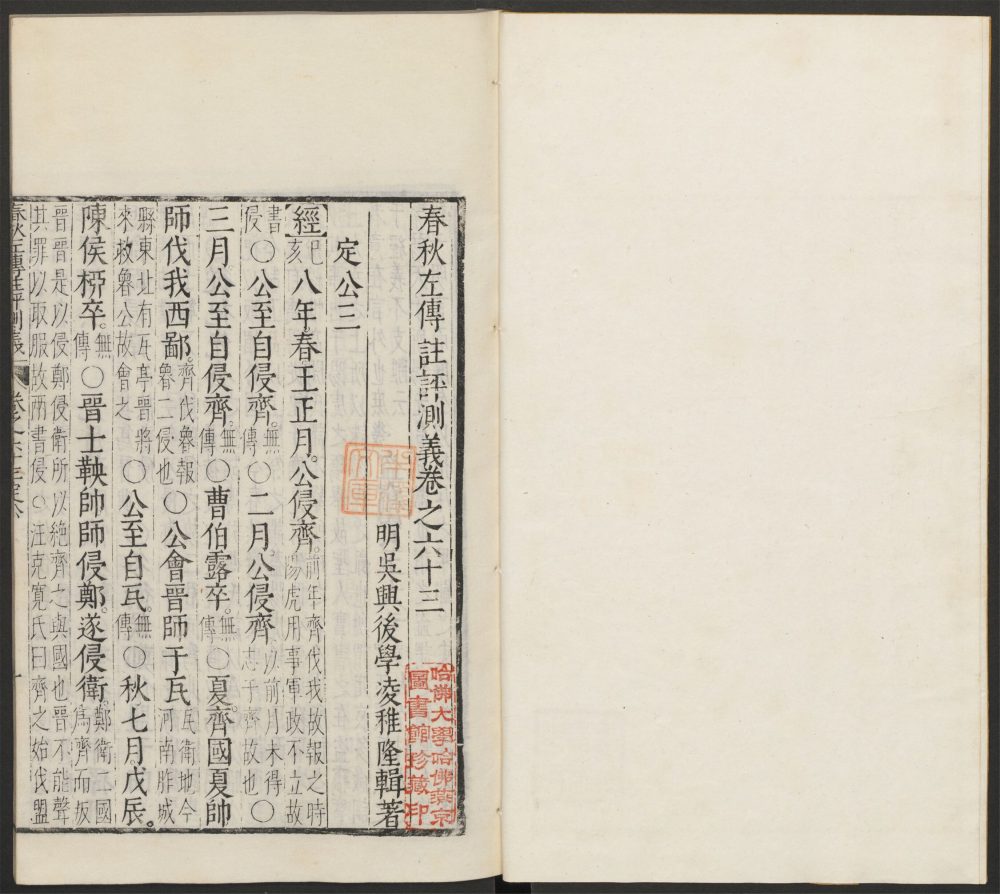 春秋左傳註評測義卷之六十三
明吳興後學凌稚隆輯著
定公三
經己亥八年春王正月公侵齊前年齊伐我故報之時陽虎用事軍政不立故
書侵〇公至自侵齊無傳〇二月公侵齊以前月未得志于齊故也〇
三月公至自侵齊無傳〇曹伯露卒無傳〇夏齊國夏帥
師伐我西鄙齊伐魯報魯二侵也〇公會晉師于瓦瓦衛地今河南胙城
縣東北有瓦亭晉將來救魯公故會之〇公至自瓦無傳〇秋七月戊辰
陳侯柳卒無傳〇晉士鞅帥師侵鄭遂侵衛鄭衛二國爲齊而叛
晉晉是以侵鄭侵衛所以絶齊之與國也晉不能聲
其罪以取服故兩書侵〇汪克寬氏曰齊之始伐盟
春秋左傳註評測義
哈佛大學哈佛燕京
圖書館珍藏印